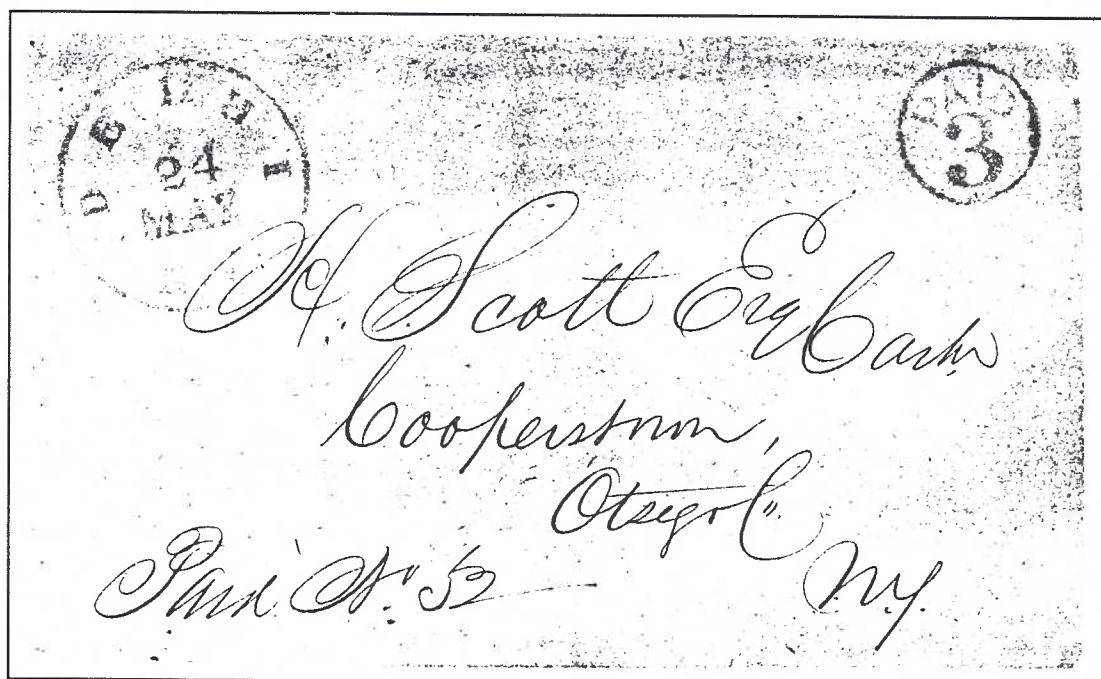 DELHI
24
MAY
PAID
3
H. Scott Esq Cash.
Cooperstown,
Otsego Co.
N.Y.
Paid No. 52